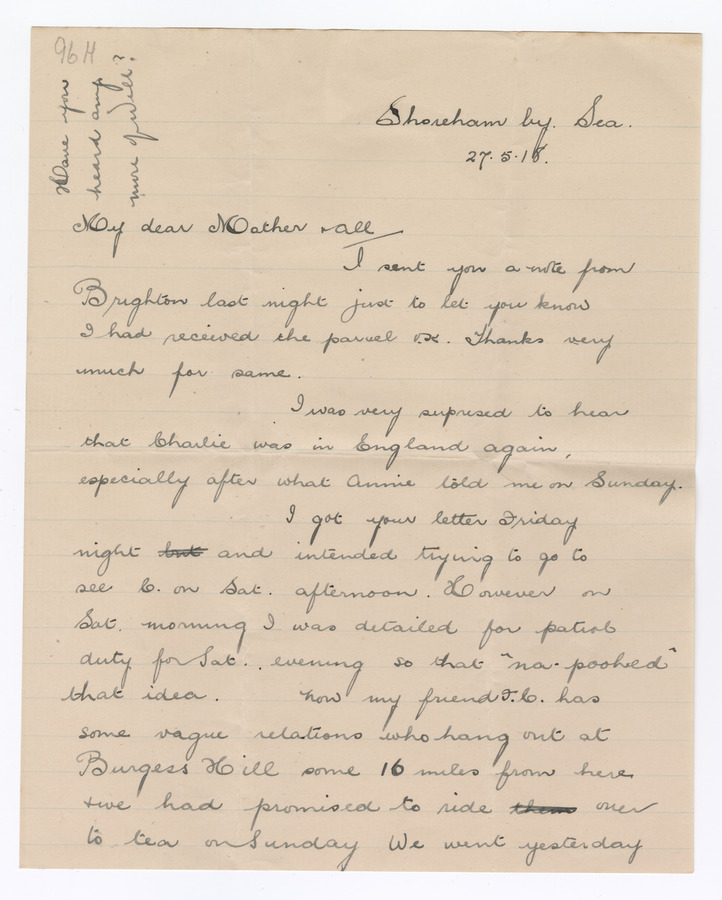 96H
Have you
heard any
more of Will?
Shoreham by. Sea.
27.5.18.
My dear Mother + all
I sent you a note from
Brighton last night just to let you know
I had received the parcel o.k. Thanks very
much for same.
I was very suprised to hear
that Charlie was in England again,
especially after what Annie told me on Sunday.
I got your letter Friday
night but and intended trying to go to
see C. on Sat. afternoon. However on
Sat. morning I was detailed for patrol
duty for Sat. evening so that "na-poohed"
that idea. Now my friend F.C. has
some vague relations who hang out at
Burgess Hill some 16 miles from here
+ we had promised to ride them over
to tea on Sunday We went yesterday